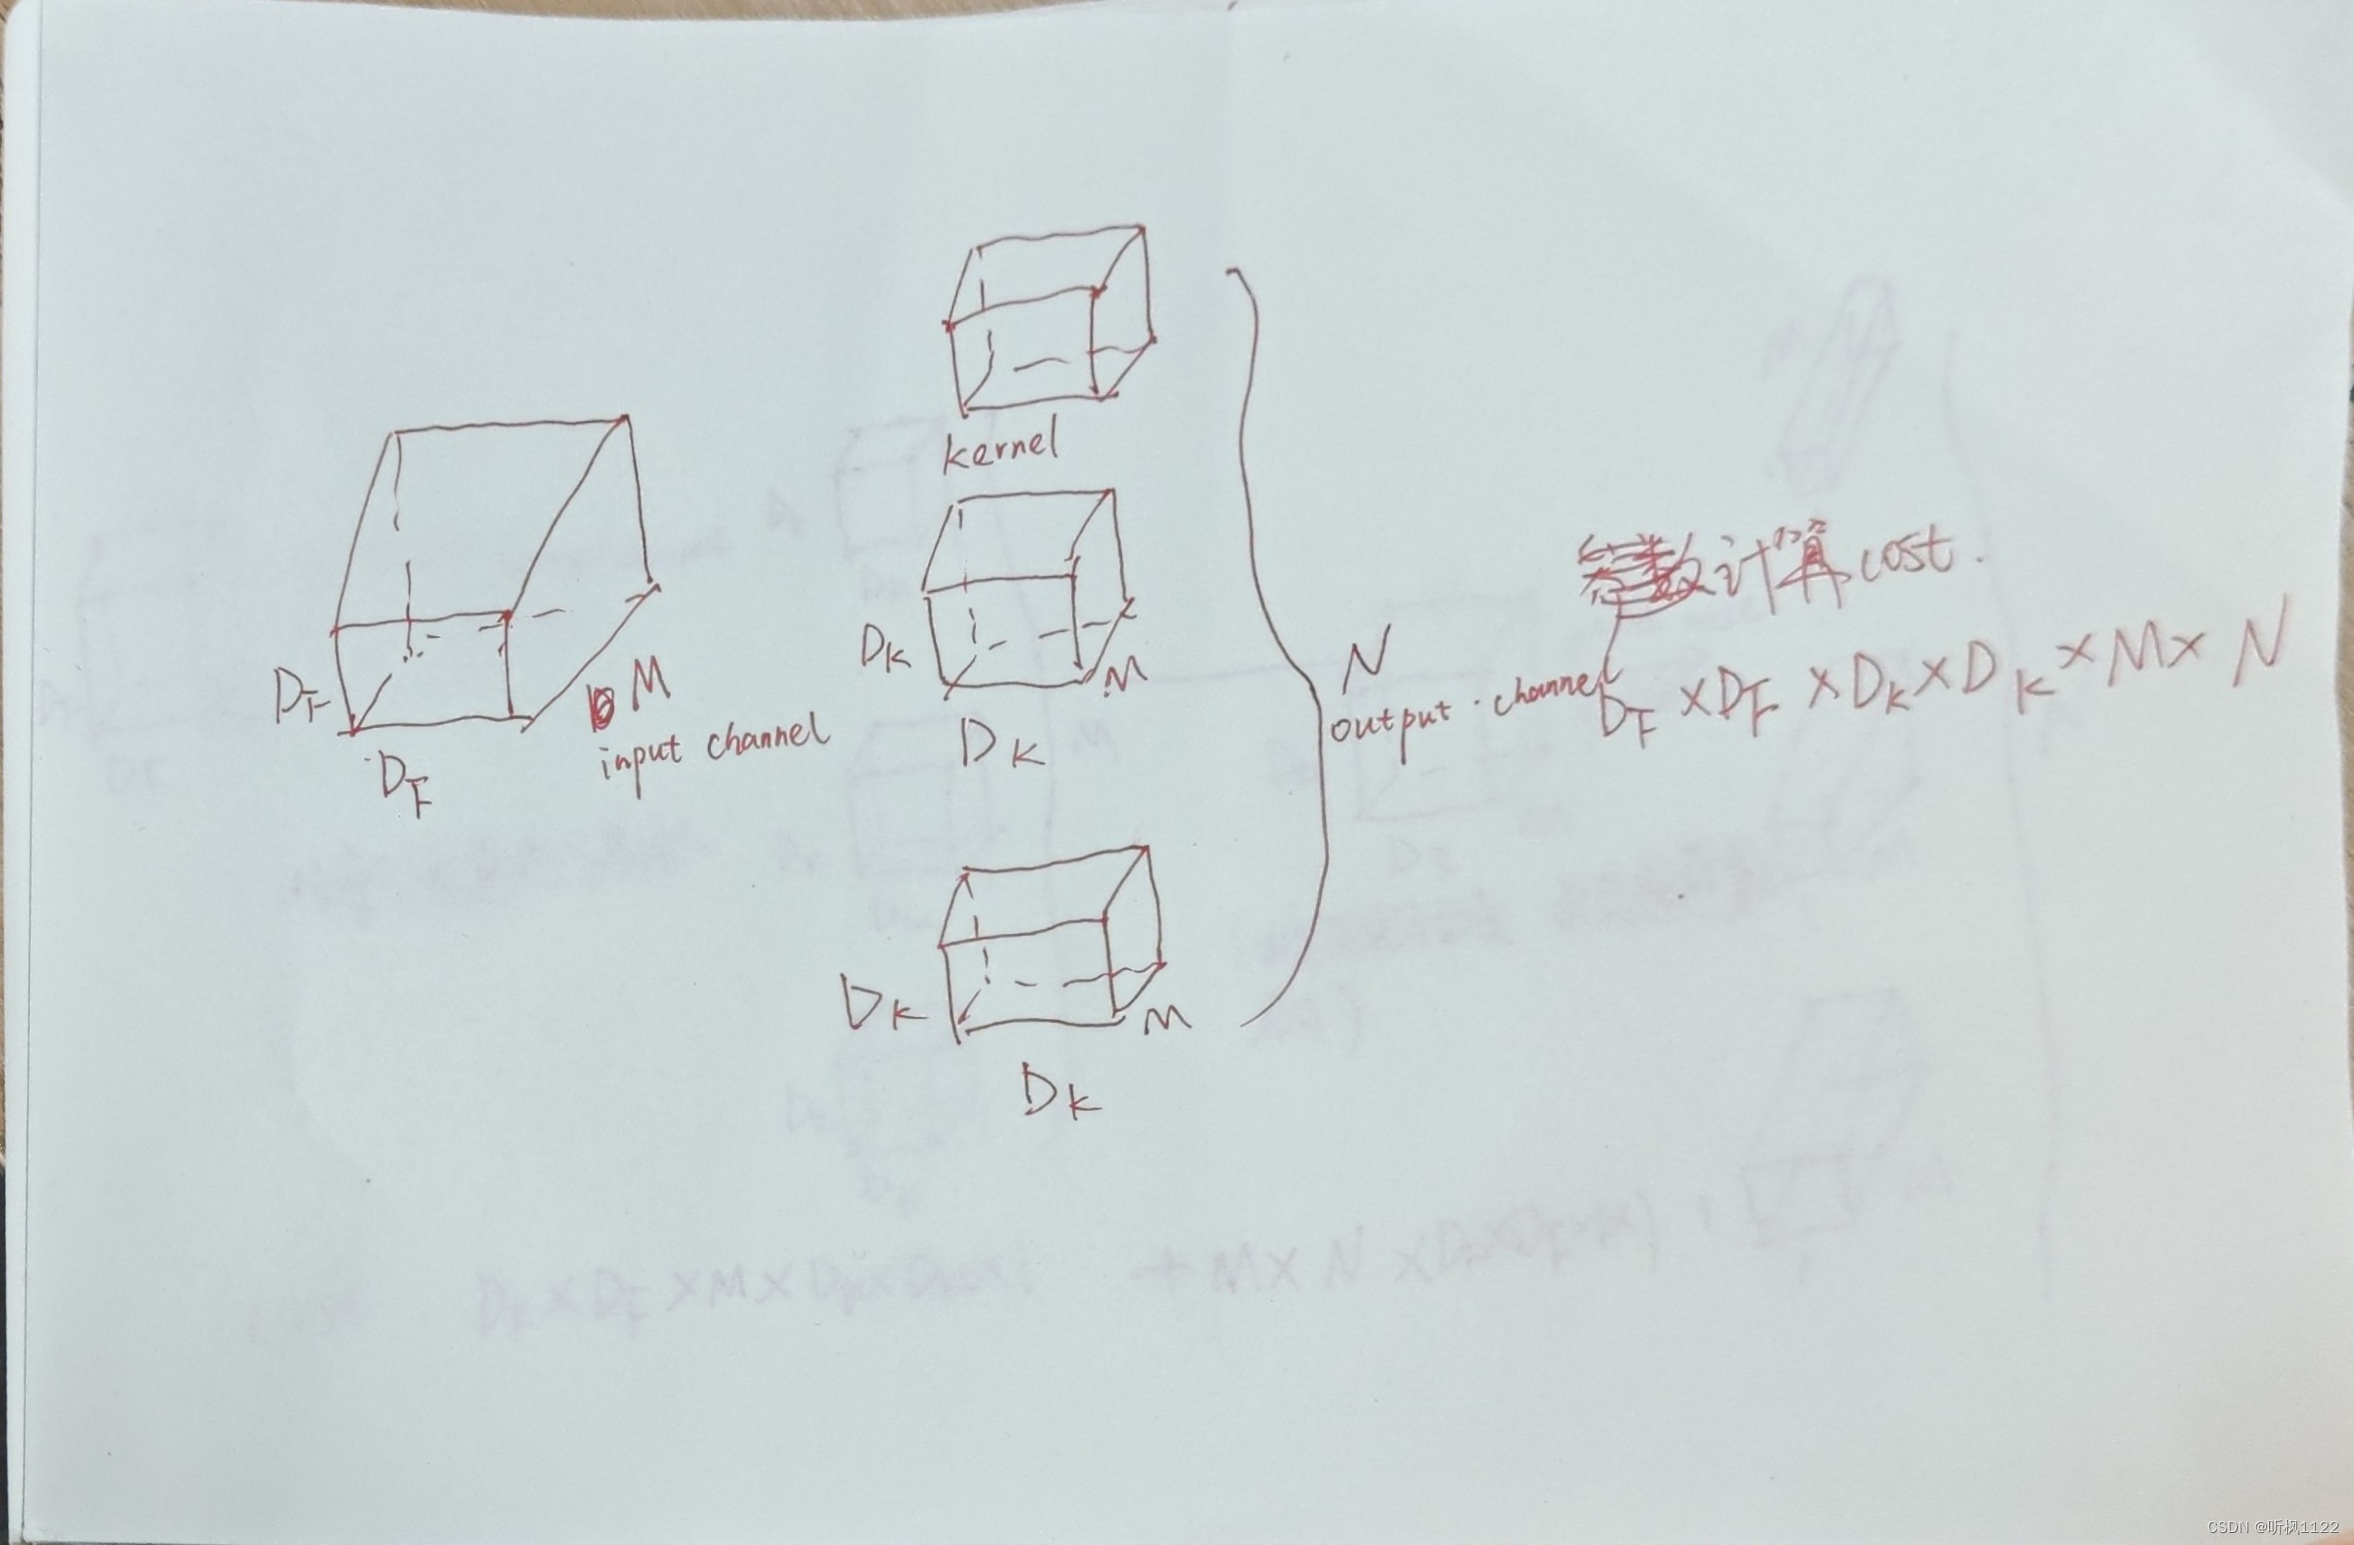 kernel
D_F
M
input channel
D_F
D_K
M
D_K
D_K
M
D_K
N
output channel
计算cost.
D_F × D_F × D_K × D_K × M × N
CSDN @听枫1122